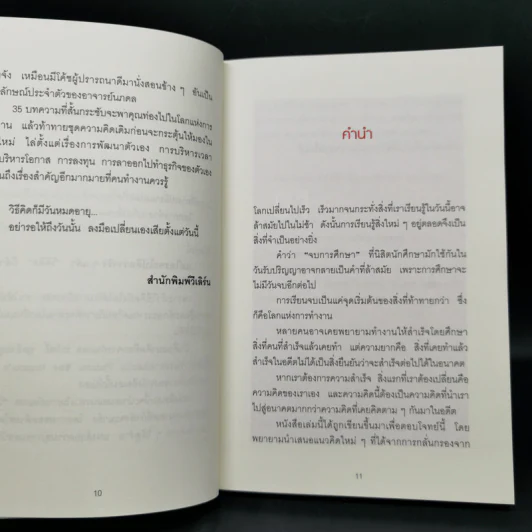 จัง เหมือนมีโค้ชผู้ปรารถนาดีมานั่งสอนข้าง ๆ อันเป็น
ลักษณ์ประจำตัวของอาจารย์นภดล
35 บทความที่สั้นกระชับจะพาคุณท่องไปในโลกแห่งการ
าน แล้วท้าทายชุดความคิดเดิมก่อนจะกระตุ้นให้มองใน
ใหม่ ไล่ตั้งแต่เรื่องการพัฒนาตัวเอง การบริหารเวลา
บริหารโอกาส การลงทุน การลาออกไปทำธุรกิจของตัวเอง
นถึงเรื่องสำคัญอีกมากมายที่คนทำงานควรรู้
วิธีคิดก็มีวันหมดอายุ...
อย่ารอให้ถึงวันนั้น ลงมือเปลี่ยนเองเสียตั้งแต่วันนี้
สำนักพิมพ์วีเลิร์น
10
คำนำ
โลกเปลี่ยนไปเร็ว เร็วมากจนกระทั่งสิ่งที่เราเรียนรู้ในวันนี้อาจ
ล้าสมัยไปในไม่ช้า ดังนั้นการเรียนรู้สิ่งใหม่ ๆ อยู่ตลอดจึงเป็น
สิ่งที่จำเป็นอย่างยิ่ง
คำว่า “จบการศึกษา” ที่นิสิตนักศึกษามักใช้กันใน
วันรับปริญญาอาจกลายเป็นคำที่ล้าสมัย เพราะการศึกษาจะ
ไม่มีวันจบอีกต่อไป
การเรียนจบเป็นแค่จุดเริ่มต้นของสิ่งที่ท้าทายกว่า ซึ่ง
ก็คือโลกแห่งการทำงาน
หลายคนอาจเคยพยายามทำงานให้สำเร็จโดยศึกษา
สิ่งที่คนที่สำเร็จแล้วเคยทำ แต่ความยากคือ สิ่งที่เคยทำแล้ว
สำเร็จในอดีตไม่ได้เป็นสิ่งยืนยันว่าจะสำเร็จต่อไปได้ในอนาคต
หากเราต้องการความสำเร็จ สิ่งแรกที่เราต้องเปลี่ยนคือ
ความคิดของเราเอง และความคิดนี้ต้องเป็นความคิดที่นำเรา
ไปสู่อนาคตมากกว่าความคิดที่เคยคิดตาม ๆ กันมาในอดีต
หนังสือเล่มนี้ได้ถูกเขียนขึ้นมาเพื่อตอบโจทย์นี้ โดย
พยายามนำเสนอแนวคิดใหม่ ๆ ที่ได้จากการกลั่นกรองจาก
11